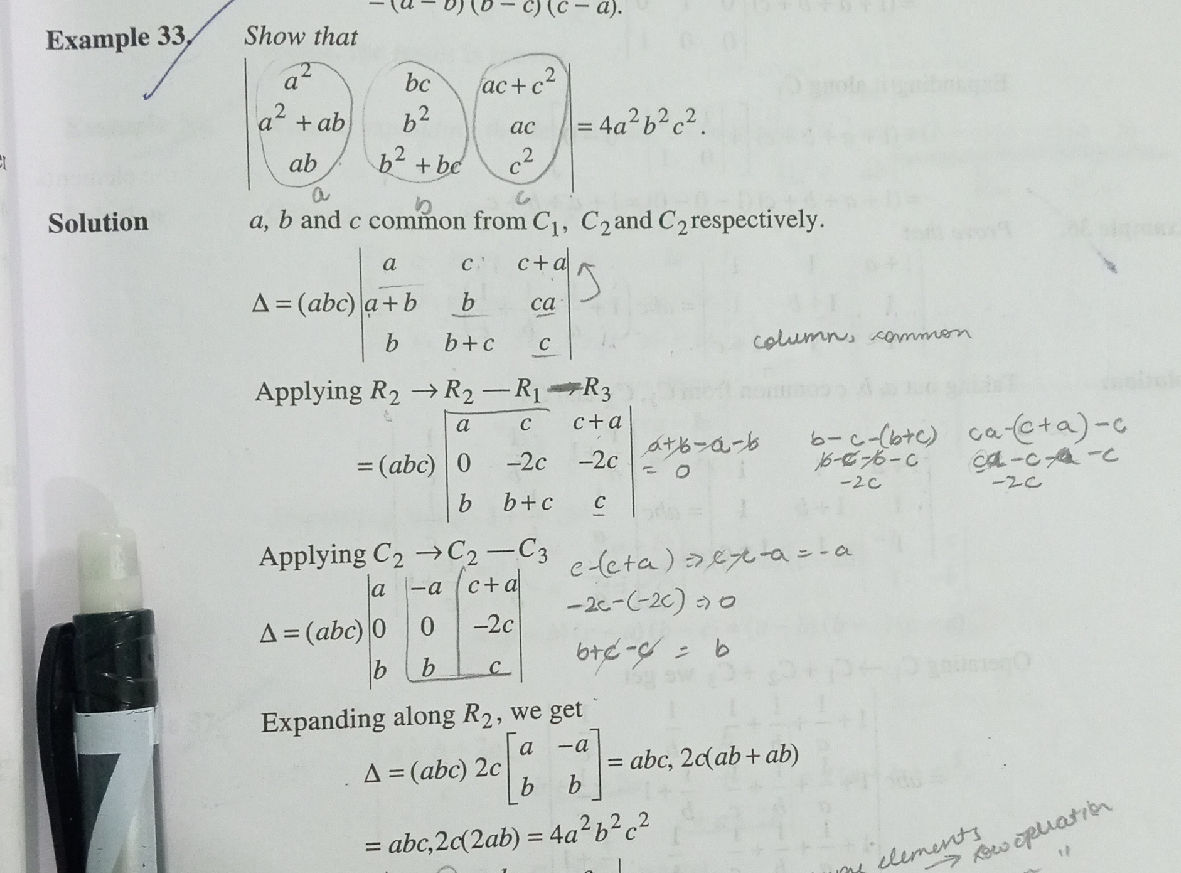 – (a – b) (b – c) (c – a).
Example 33. Show that
| a² bc ac + c² |
| a² + ab b² ac | = 4a²b²c².
| ab b² + bc c² |
a b c
Solution a, b and c common from C₁, C₂ and C₂ respectively.
| a c c + a |
Δ = (abc) | a + b b ca |
| b b + c c |
column, common
Applying R₂ → R₂ — R₁ — R₃
| a c c + a |
= (abc) | 0 –2c –2c |
| b b + c c |
a+b-a-b
= 0
b-c-(b+c)
b-c-b-c
-2c
ca-(c+a)-c
ca-c-a-c
-2c
Applying C₂ → C₂ — C₃
c-(c+a) ⇒ c-c-a = -a
| a –a c + a |
Δ = (abc) | 0 0 –2c |
| b b c |
-2c-(-2c) ⇒ 0
b+c-c = b
Expanding along R₂, we get
Δ = (abc) 2c [ a –a ] = abc, 2c(ab + ab)
[ b b ]
= abc,2c(2ab) = 4a²b²c²
elements → row operation
"